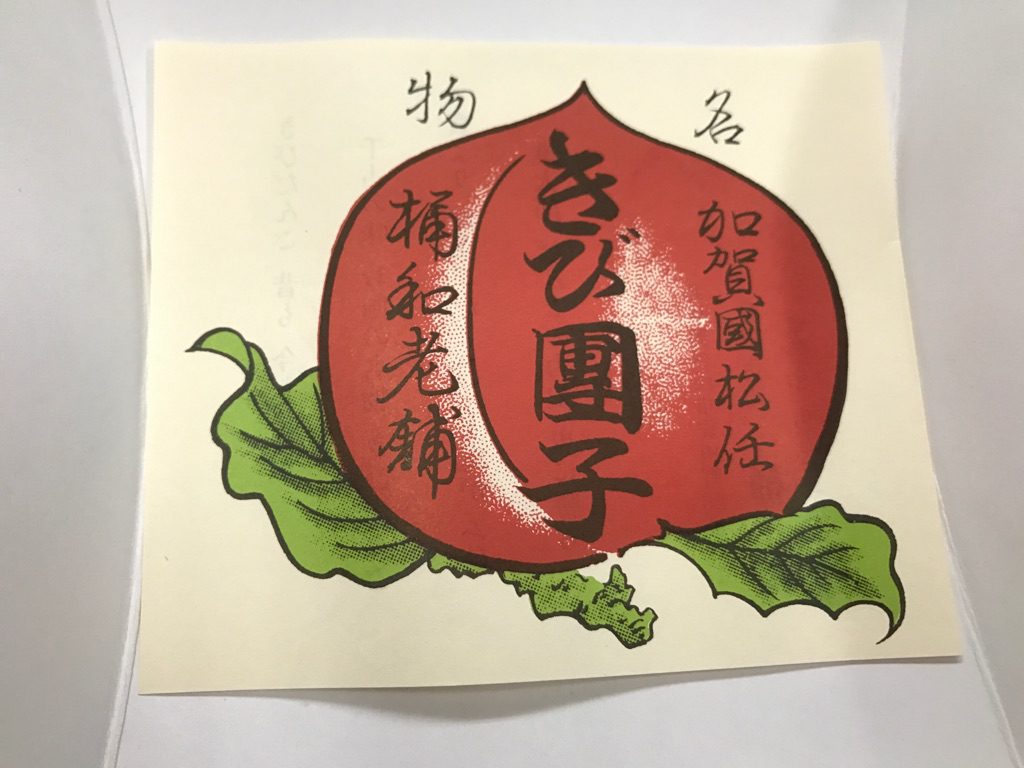 名物
加賀國松任
きび團子
桶和老舖